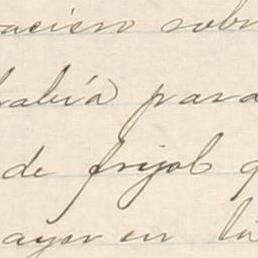 ación sobr
había para
de frijol q
ayor en la